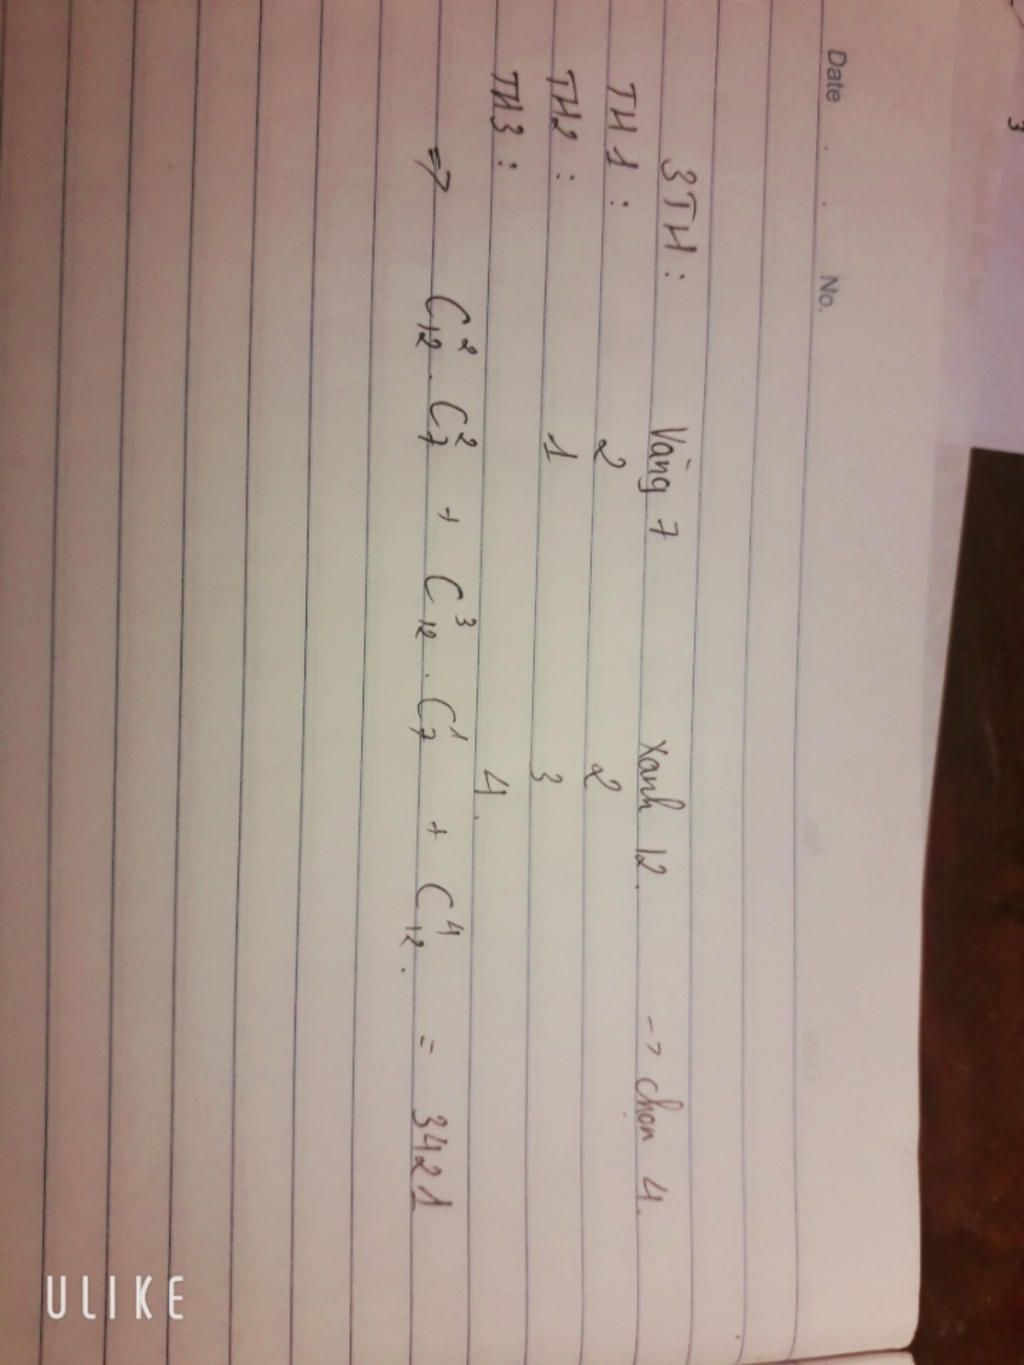 Date . . No.
3
3TH: Vàng 7 Xanh 12. -> chọn 4.
TH1: 2 2
TH2: 1 3
TH3: 4.
=> C²₁₂ . C²₇ + C³₁₂ . C¹₇ + C⁴₁₂. = 3421
ULIKE